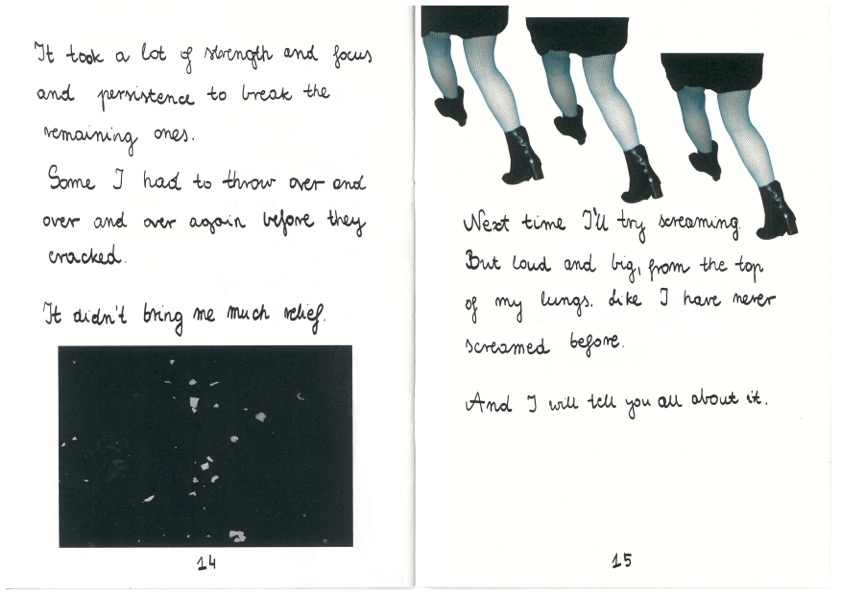 It took a lot of strength and focus
and persistence to break the
remaining ones.
Some I had to throw over and
over and over again before they
cracked.
It didn't bring me much relief.
14
Next time I'll try screaming.
But loud and big, from the top
of my lungs. Like I have never
screamed before.
And I will tell you all about it.
15